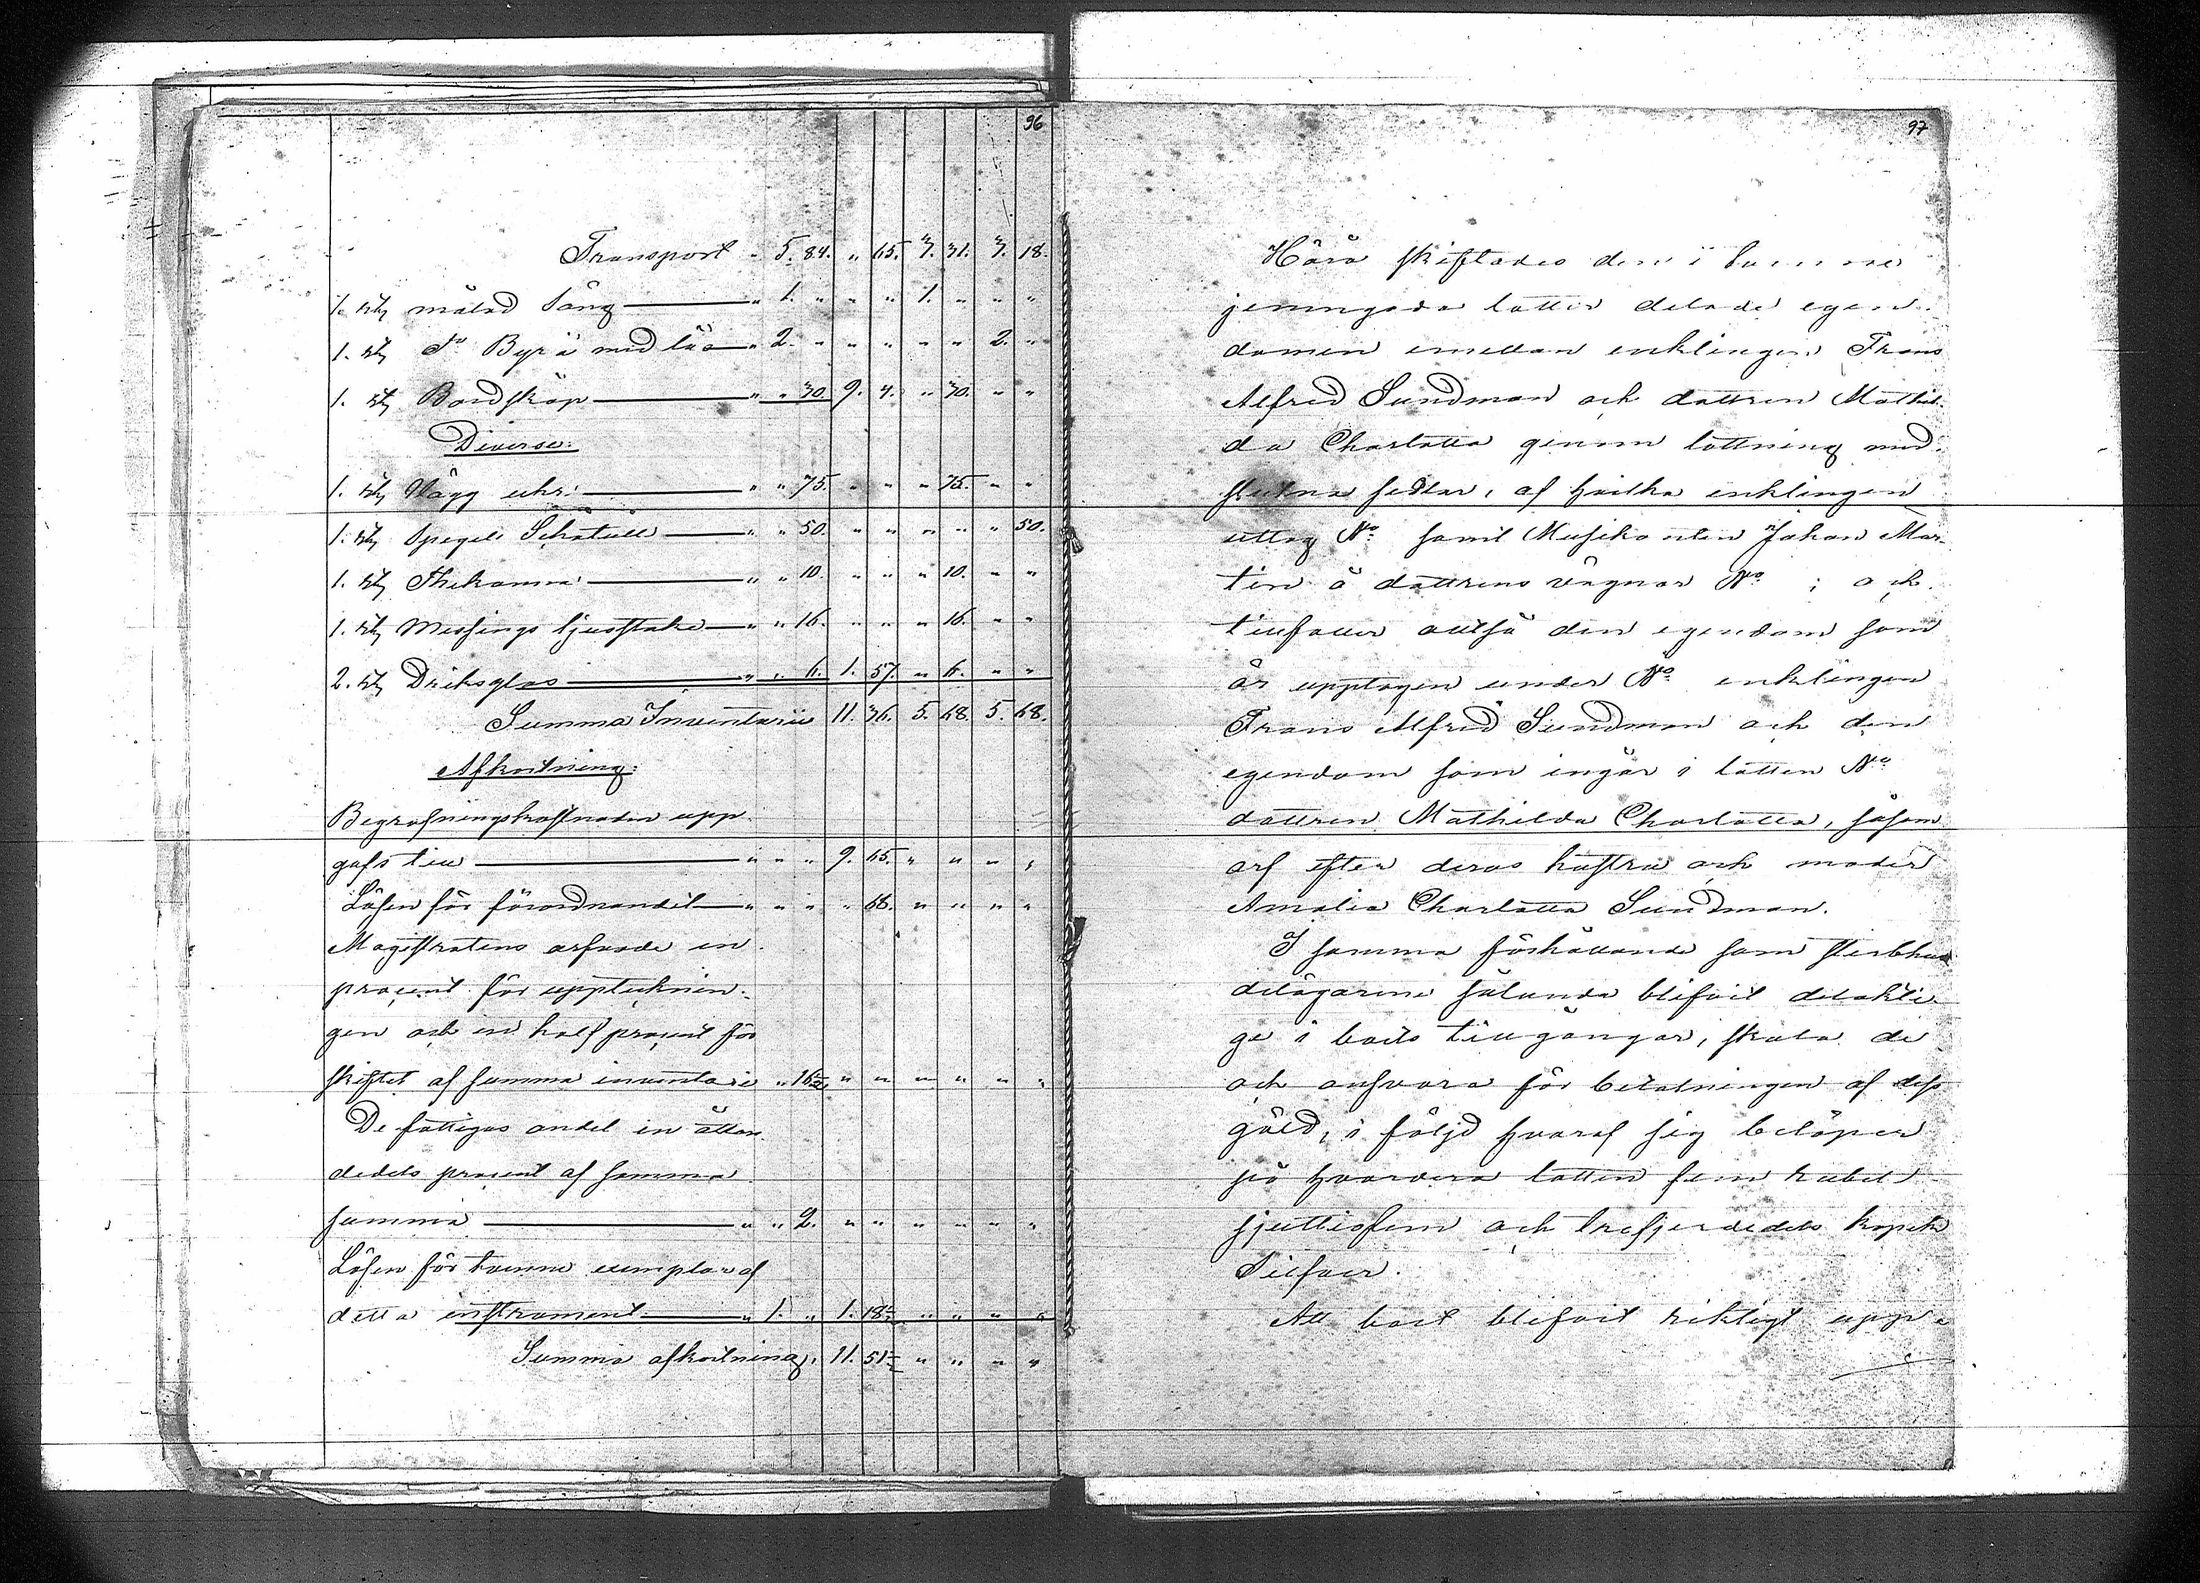 96
Transport " 5. 84. " 65. 3. 31. 3. 18.
1. st målad Säng " 1. " " " 1. " " "
1. st do Byrå med lås " 2. " " " " " 2. "
1. st Bordskåp " " 30. 9. 4. " 30. " "
Diverse:
1. st Vägg uhr: " " 75. " " " 75. " "
1. st Spegel " " 50. " " " " " 50.
1. st Thekanna: " " 10. " " " 10. " "
1. st Messings ljusstake " " 16. " " " 16. " "
2. st Driksglas " " 6. 1. 57. " 6. " "
Summa Inventarii 11. 36. 5. 68. 5. 68.
Afkortning:
Begrafningskostnaden upp
gafs till " " " 9. 65. " " " "
Lösen för förordnandet " " " " 66. " " " "
Magistratens arfvode en
procent för uppteknin-
gen och en half procent för
skiftet af summa inventarii " 16½ " " " " " "
De fattigas andel en åtton
dedels procent af samma
summa " " 2. " " " " " "
Lösen för tvenne exemplar af
detta instrument " 1. " 1. 18½ " " " "
Summa afkortning, 11. 51½ " " " "
97
Härå skiftades den i tvenne
jemngoda lotter delade egen
domen emellan enklingen Frans
Alfred Sundman och dottren Mathil-
da Charlotta genom lottning med
slutna sedlar, af hvilka enklingen
uttog No samt Musikanten Johan Mar-
tin å dottrens vägnar No ; och
tillfaller alltså den egendom som
är upptagen under No enklingen
Frans Alfred Sundman och den
egendom som ingår i lotten No
dottren Mathilda Charlotta, såsom
arf efter deras hustru och moder
Amalia Charlotta Sundman.
I samma förhållande som sterbhus
delägarene sålunda blifvit delakti-
ge i boets tillgångar, skola de
och ansvara för betalningen af dess
gäld, i följd hvaraf sig belöper
på hvardera lotten fem rubel
sjuttiofem och trefjerdedels kopek
Silfver.
Att boet blifvit riktigt upp-